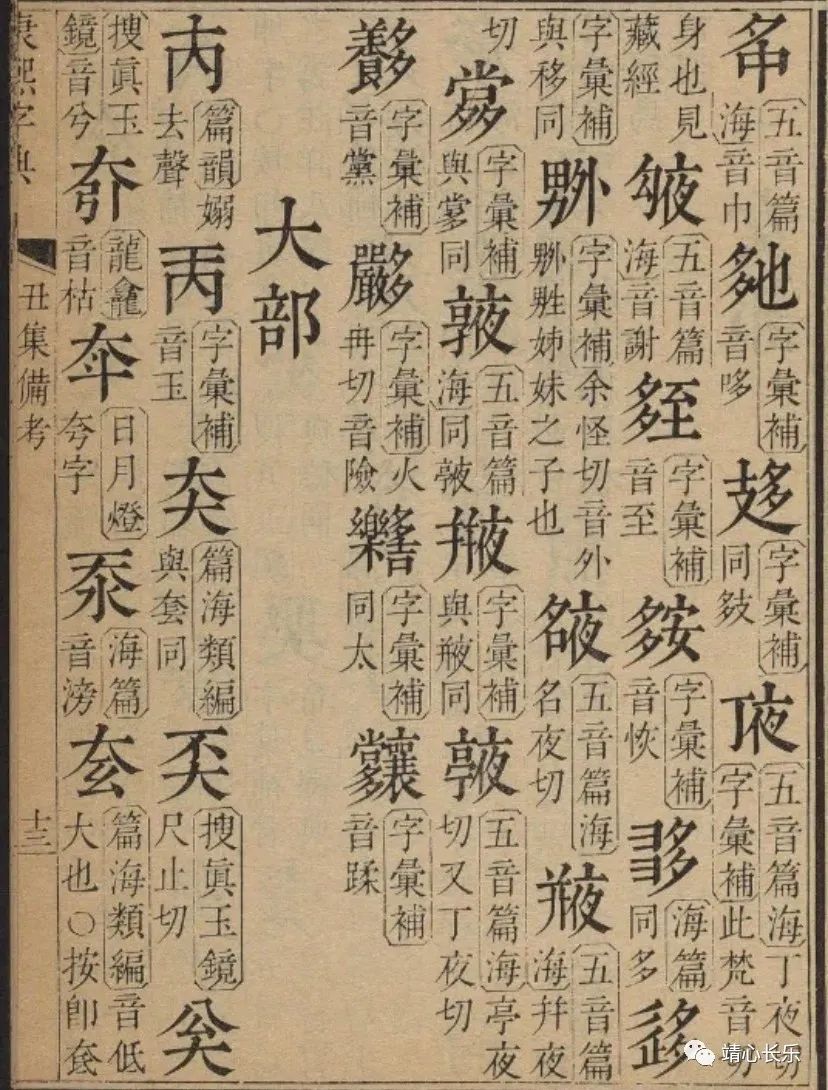 五音篇海音巾 字彙補音哆 字彙補同 五音篇海丁夜切字彙補此梵音切
身也見藏經 五音篇海音謝 字彙補音至 字彙補音恢 海篇同多
字彙補與移同 字彙補余怪切音外姊妹之子也 五音篇海名夜切 五音篇海并夜
切 字彙補與同 五音篇海同 字彙補與同 五音篇海亭夜切又丁夜切
字彙補音黨 字彙補火冉切音險 字彙補同太 字彙補音蹂
大部
篇韻嫋去聲 字彙補音玉 篇海類編與套同 搜眞玉鏡尺止切
搜眞玉鏡音兮 龍龕音枯 日月燈夸字 海篇音滂 篇海類編音低大也○按卽奃
康熙字典 丑集備考 十三
靖心长乐